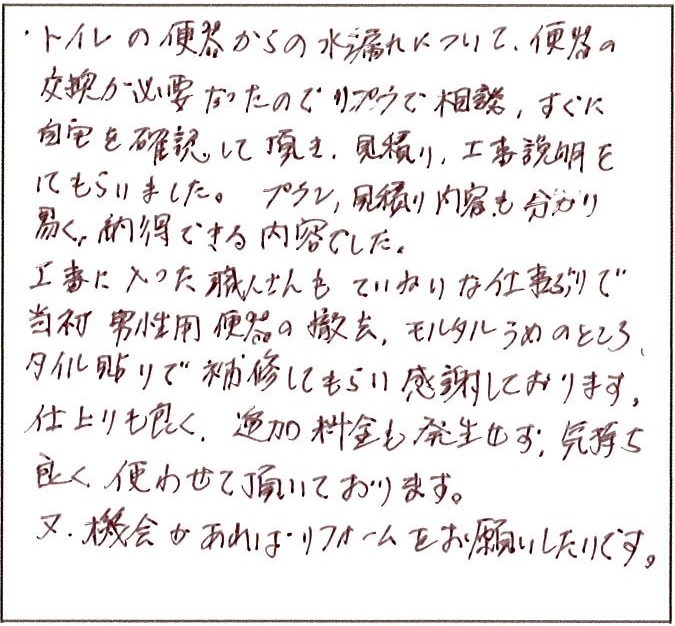 ・トイレの便器からの水漏れについて、便器の
交換が必要だったのでリプラウで相談、すぐに
自宅を確認して頂き、見積り、工事説明を
してもらいました。プラン、見積り内容も分かり
易く、納得できる内容でした。
工事に入った職人さんもていねいな仕事ぶりで
当初男性用便器の撤去、モルタルうめのところ、
タイル貼りで補修してもらい感謝しております。
仕上りも良く、追加料金も発生せず、気持ち
良く使わせて頂いております。
又、機会があればリフォームをお願いしたいです。